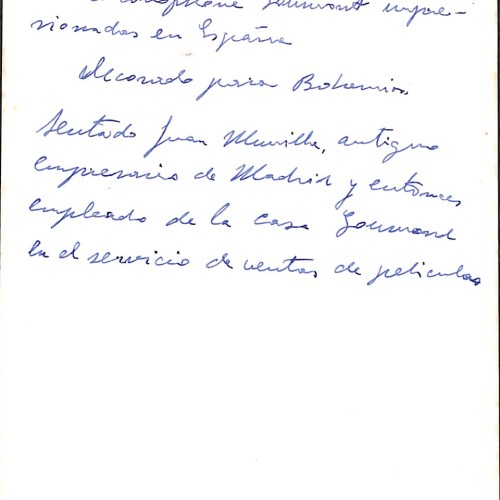 Gaumont impre-
sionadas en España
Decorado para Bohemios
Sentado Juan antiguo
empresario de Madrid y entonces
empleado de la casa Goumond
en el servicio de ventas de peliculas